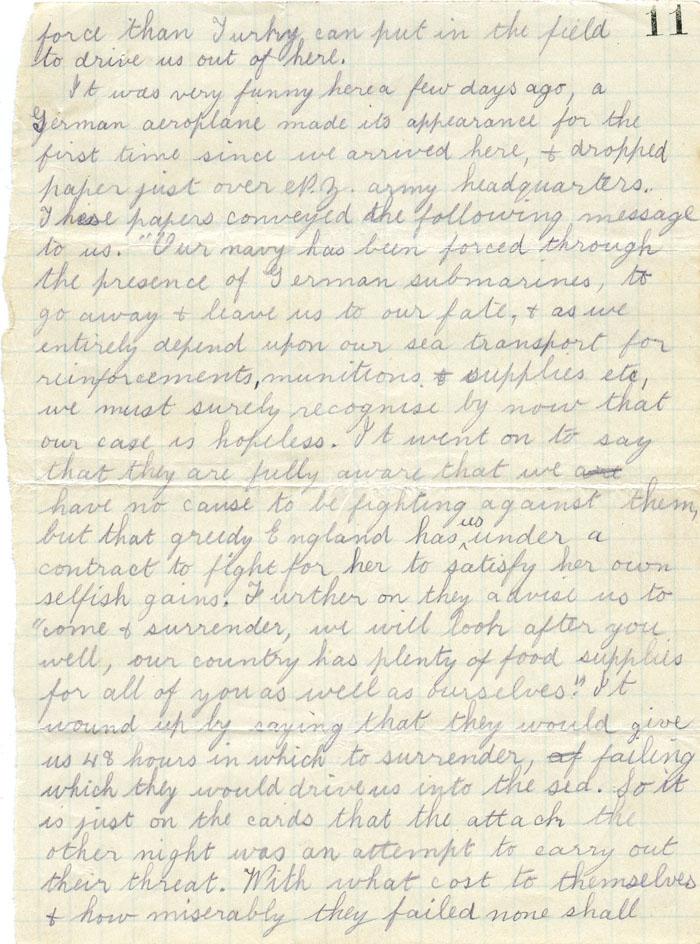 11
force than Turky can put in the field
to drive us out of here.
It was very funny here a few days ago, a
German aeroplane made its appearance for the
first time since we arrived here, & dropped
paper just over N.Z. army headquarters.
These papers conveyed the following message
to us. "Our navy has been forced through
the presence of German submarines, to
go away & leave us to our fate, & as we
entirely depend upon our sea transport for
reinforcements, munitions & supplies etc,
we must surely recognise by now that
our case is hopeless. It went on to say
that they are fully aware that we are
have no cause to be fighting against them,
but that greedy England has us under a
contract to fight for her to satisfy her own
selfish gains. Further on they advise us to
"come & surrender, we will look after you
well, our country has plenty of food supplies
for all of you as well as ourselves." It
wound up by saying that they would give
us 48 hours in which to surrender, of failing
which they would drive us into the sea. So it
is just on the cards that the attack the
other night was an attempt to carry out
their threat. With what cost to themselves
& how miserably they failed none shall